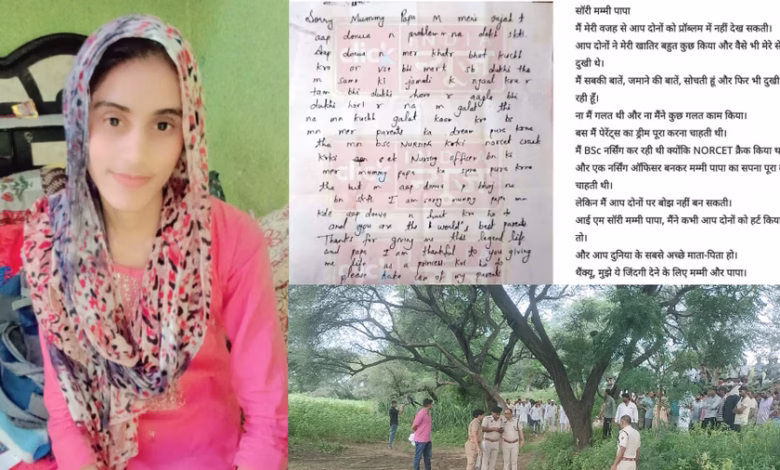 Sorry Mummy Papa M meri vajah t
aap donua n problem m na dekh skti.
Aap donua n mer khatr bhot kuchh
kro or vse bhi mert sb dukhi tha
m samo ki jamadi k ngaal kre r
tam bhi dukhi hore r aagle bhi
dukhi hoel r na m galat thi
na mn kuchh galat kaam kro bs
mn mer parents ka dream pura krna
tha mn bsc Nursing krki norcet crack
krki set Nursing officer bn ki
mer mummy papa ka spna pura krna
tha but m aap donua bhoj na
bn skti. I am sorry mummy papa mn
kde aap donua n hurt kro ho to
and you are the world's best parents
Thanks for giving me this legend life
and papa I am thankful to you giving
me life as a princess kol ho to
please take car of my parents
सॉरी मम्मी पापा
मैं मेरी वजह से आप दोनों को प्रॉब्लम में नहीं देख सकती।
आप दोनों ने मेरी खातिर बहुत कुछ किया और वैसे भी मेरे से
दुखी थे।
मैं सबकी बातें, जमाने की बातें, सोचती हूं और फिर भी दुखी
रही हूँ।
ना मैं गलत थी और ना मैंने कुछ गलत काम किया।
बस मैं पेरेंट्स का ड्रीम पूरा करना चाहती थी।
मैं BSc नर्सिंग कर रही थी क्योंकि NORCET क्रैक किया
और एक नर्सिंग ऑफिसर बनकर मम्मी पापा का सपना पूरा
चाहती थी।
लेकिन मैं आप दोनों पर बोझ नहीं बन सकती।
आई एम सॉरी मम्मी पापा, मैंने कभी आप दोनों को हर्ट किया
तो।
और आप दुनिया के सबसे अच्छे माता-पिता हो।
थैंक्यू, मुझे ये जिंदगी देने के लिए मम्मी और पापा।